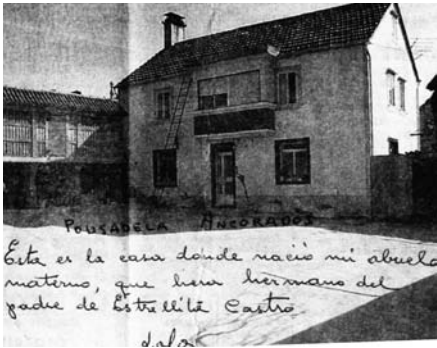 POUSADELA ANCORADOS
Esta es la casa donde nació mi abuelo
materno, que hiera hermano del
padre de Estrellita Castro
Lola